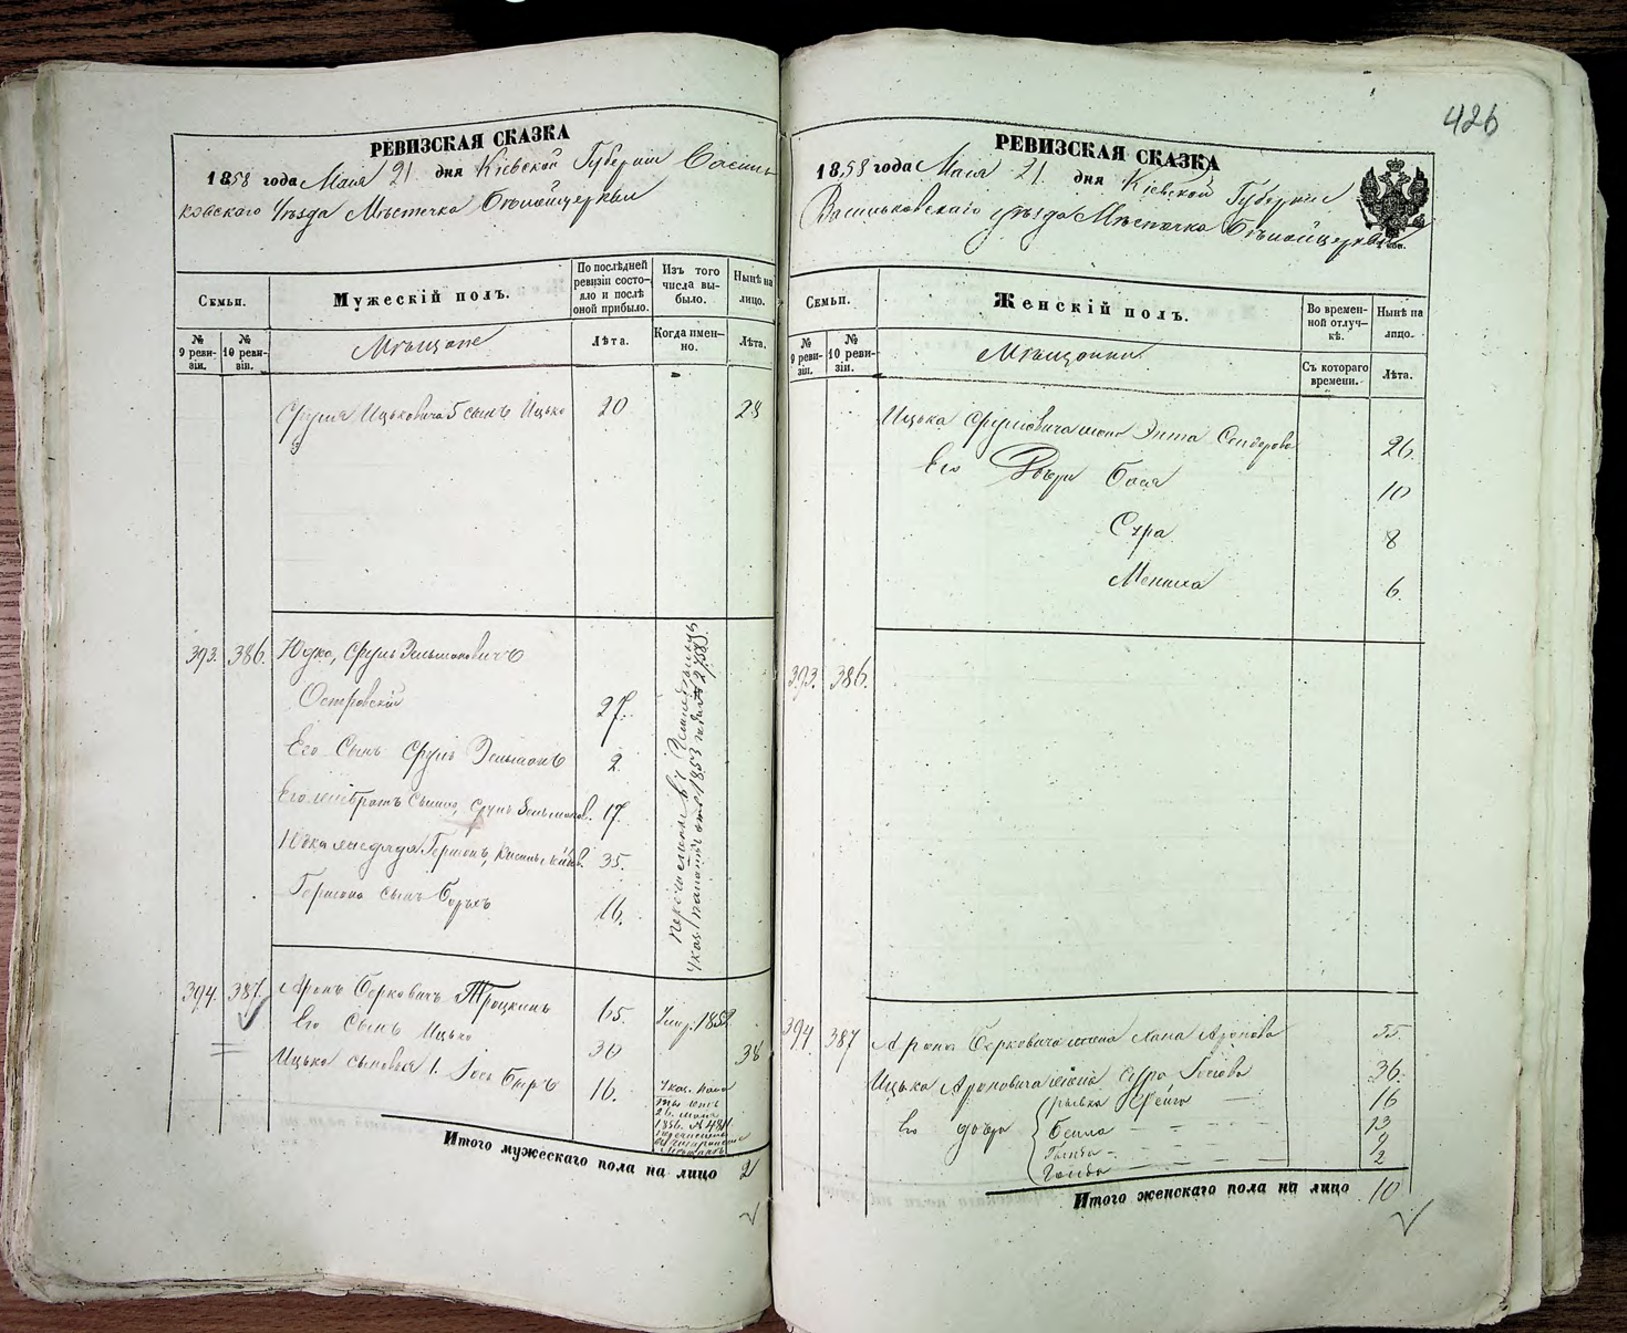 426
РЕВИЗСКАЯ СКАЗКА
1858 года Мая 21 дня Кіевской Губерніи Василь-
ковскаго Уѣзда Мѣстечка Бѣлойцеркви
Семьи.
Мужескій полъ.
По послѣдней ревизіи состояло и послѣ оной прибыло.
Изъ того числа выбыло.
Нынѣ на лицо.
№ 9 ревизіи.
№ 10 ревизіи.
Мѣщане
Лѣта.
Когда именно.
Лѣта.
Сруля Ицьковича 5 сынъ Ицько 20 28
393. 386. Юдко, Сруль Зельмановичъ
Островскій 27.
Его Сынъ Сруль Зельманъ 2.
17.
Гершонъ, 35.
Гершона сынъ Борухъ 16.
394. 387. Аронъ Берковичъ Троцкинъ 65. Умер. 1852
Его Сынъ Ицько 30 38
Ицька сыновья 1. Іось Беръ 16.
Указ. Пала
ты отъ
26. мая
1856. № 4811
Итого мужескаго пола на лицо 2
РЕВИЗСКАЯ СКАЗКА
1858 года Мая 21 дня Кіевской Губерніи
Васильковскаго уѣзда Мѣстечка Бѣлойцеркви
Семьи.
Женскій полъ.
Во временной отлучкѣ.
Нынѣ на лицо.
№ 9 ревизіи.
№ 10 ревизіи.
Мѣщанки
Съ котораго времени.
Лѣта.
Ицька Срулевича жена Энта Сендерова 26.
Его Дочери Бася 10
Сура 8
Мениха 6.
393. 386.
394 387 Арона Берковича жена Хана Аронова 55.
Ицька Ароновича жена Сура Іосіова 36.
Рывка Фейга 16
Его дочери Бейла 13
9
Голда 2
Итого женскаго пола на лицо 10